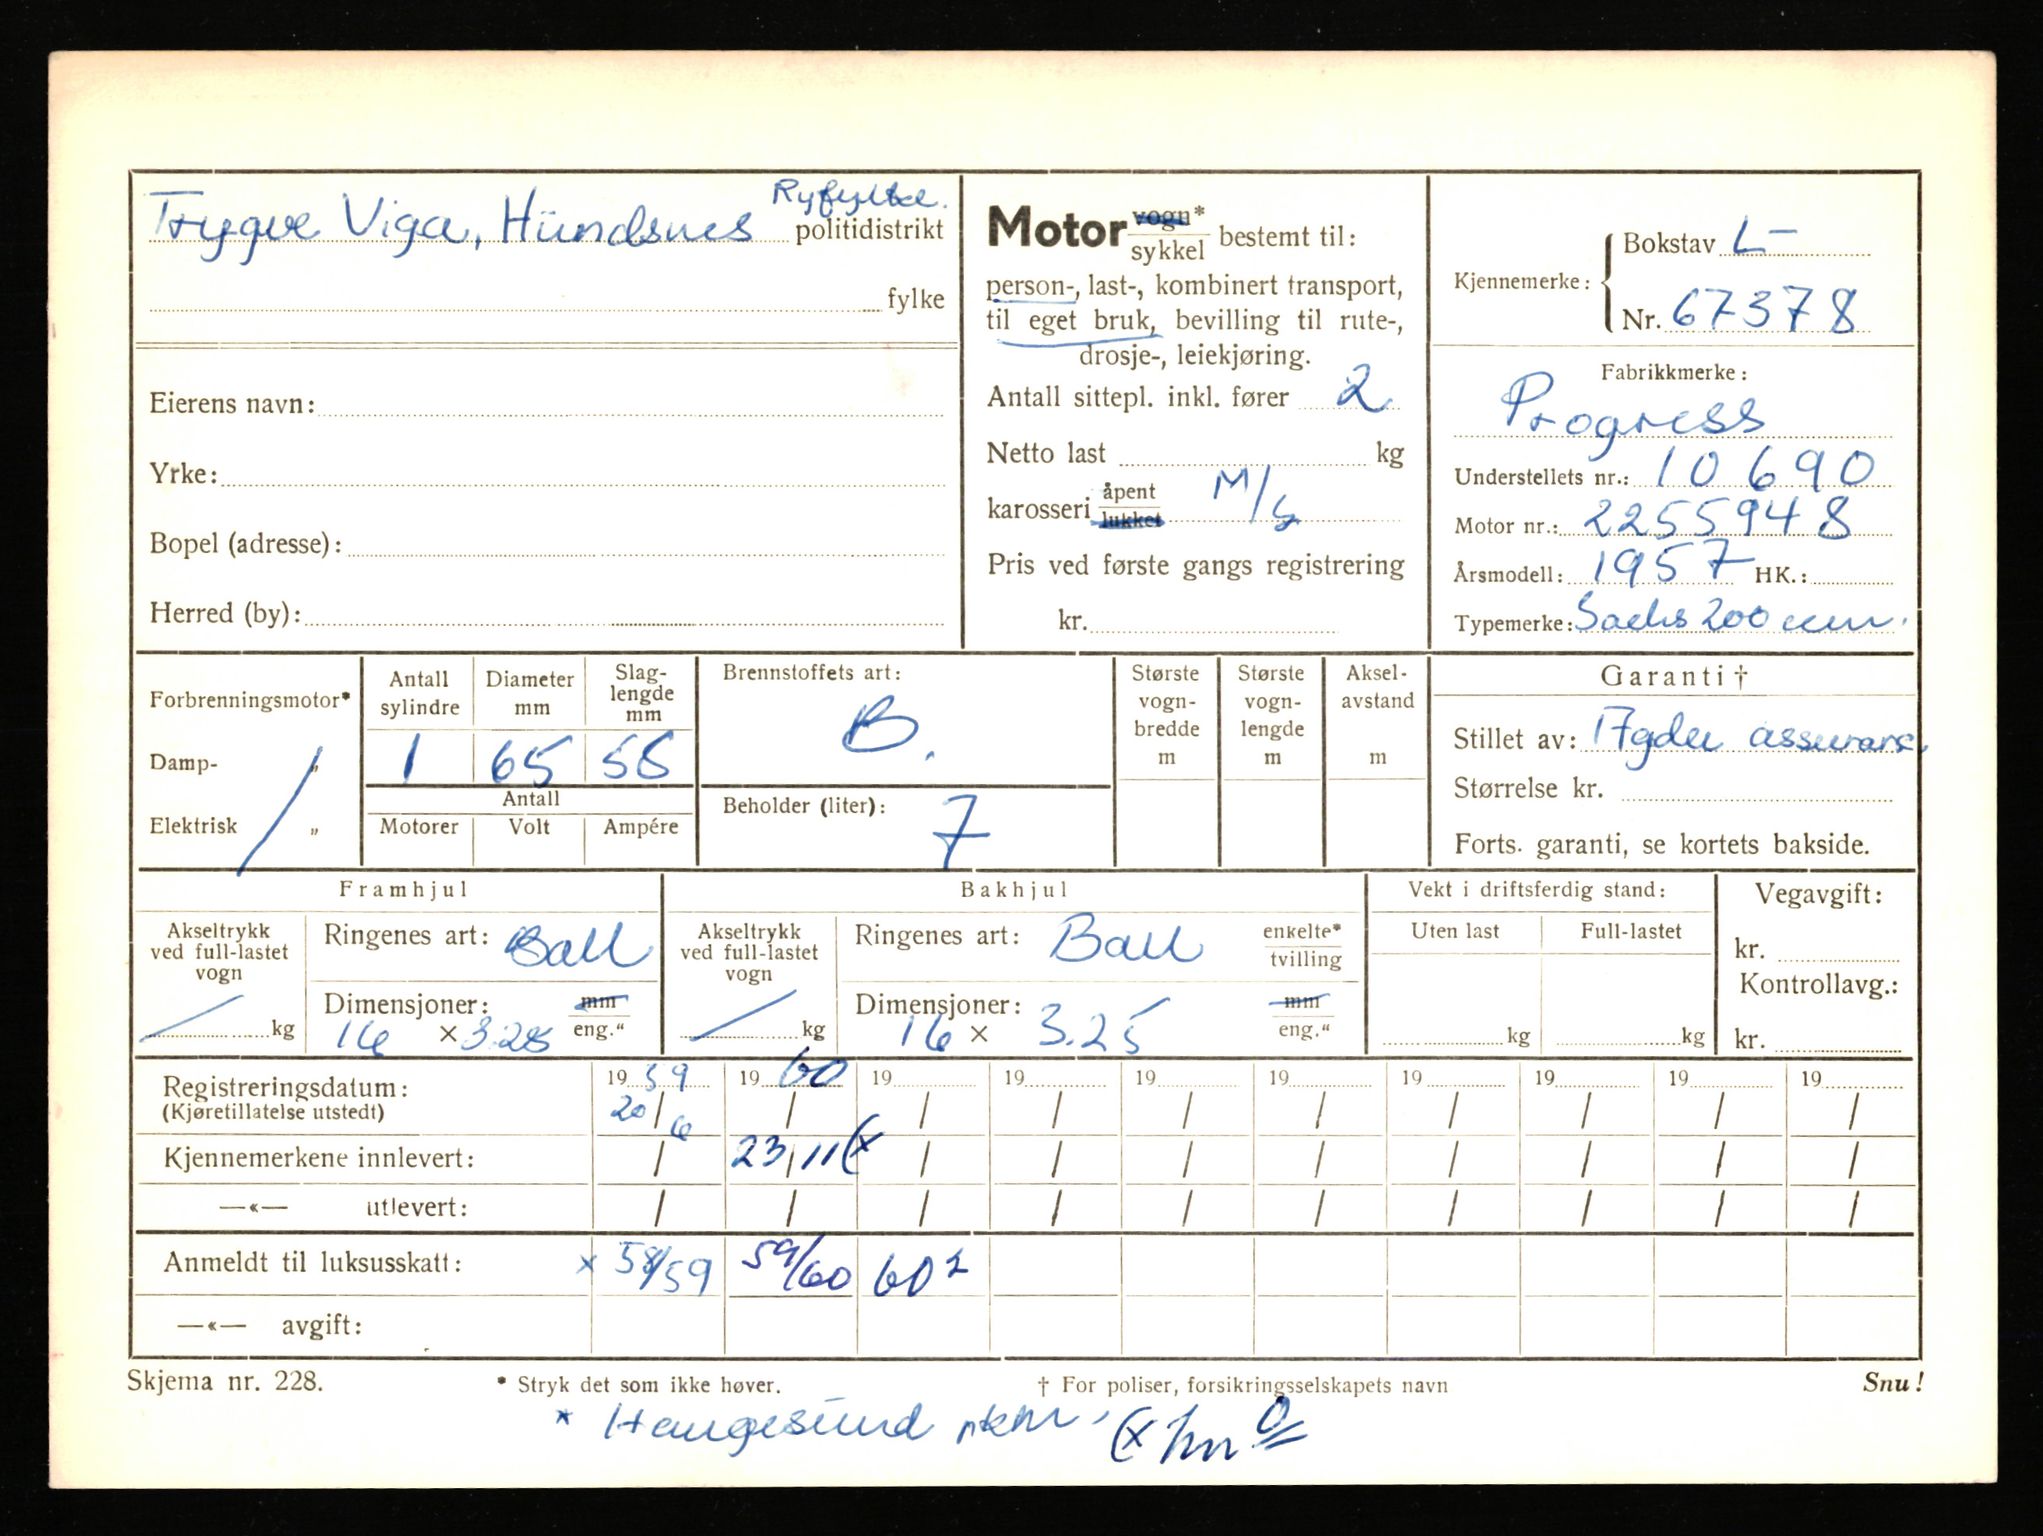 Ryfylke
Trygve Viga, Hundsnes politidistrikt
fylke
Eierens navn:
Yrke:
Bopel (adresse):
Herred (by):
Motor vogn*
sykkel bestemt til:
person-, last-, kombinert transport,
til eget bruk, bevilling til rute-,
drosje-, leiekjøring.
Antall sittepl. inkl. fører 2
Netto last kg
karosseri åpent
lukket M/s
Pris ved første gangs registrering
kr.
Kjennemerke: Bokstav L-
Nr. 67378
Fabrikkmerke:
Progress
Understellets nr.: 10690
Motor nr.: 2255948
Årsmodell: 1957 HK.:
Typemerke: Sachs 200 ccm.
Forbrenningsmotor*
Damp- „
Elektrisk „
Antall sylindre Diameter mm Slaglengde mm
1 65 58
Antall
Motorer Volt Ampére
Brennstoffets art:
B.
Beholder (liter):
7
Største vogn-bredde m
Største vogn-lengde m
Aksel-avstand m
Garanti †
Stillet av: Agder assuranse.
Størrelse kr.
Forts. garanti, se kortets bakside.
Framhjul
Akseltrykk ved full-lastet vogn
kg
Ringenes art: Ball
Dimensjoner: mm
16 × 3.25 eng.“
Bakhjul
Akseltrykk ved full-lastet vogn
kg
Ringenes art: Ball enkelte*
tvilling
Dimensjoner: mm
16 × 3.25 eng.“
Vekt i driftsferdig stand:
Uten last Full-lastet
kg kg
Vegavgift:
kr.
Kontrollavg.:
kr.
Registreringsdatum: 19 59 19 60 19 19 19 19 19 19 19 19
(Kjøretillatelse utstedt) 20/6 / / / / / / / / /
Kjennemerkene innlevert: / 23/11 (x / / / / / / / /
—«— utlevert: / / / / / / / / / /
Anmeldt til luksusskatt: x 58/59 59/60 60 2
—«— avgift:
Skjema nr. 228. * Stryk det som ikke høver. † For poliser, forsikringsselskapets navn Snu!
* Haugesund (x